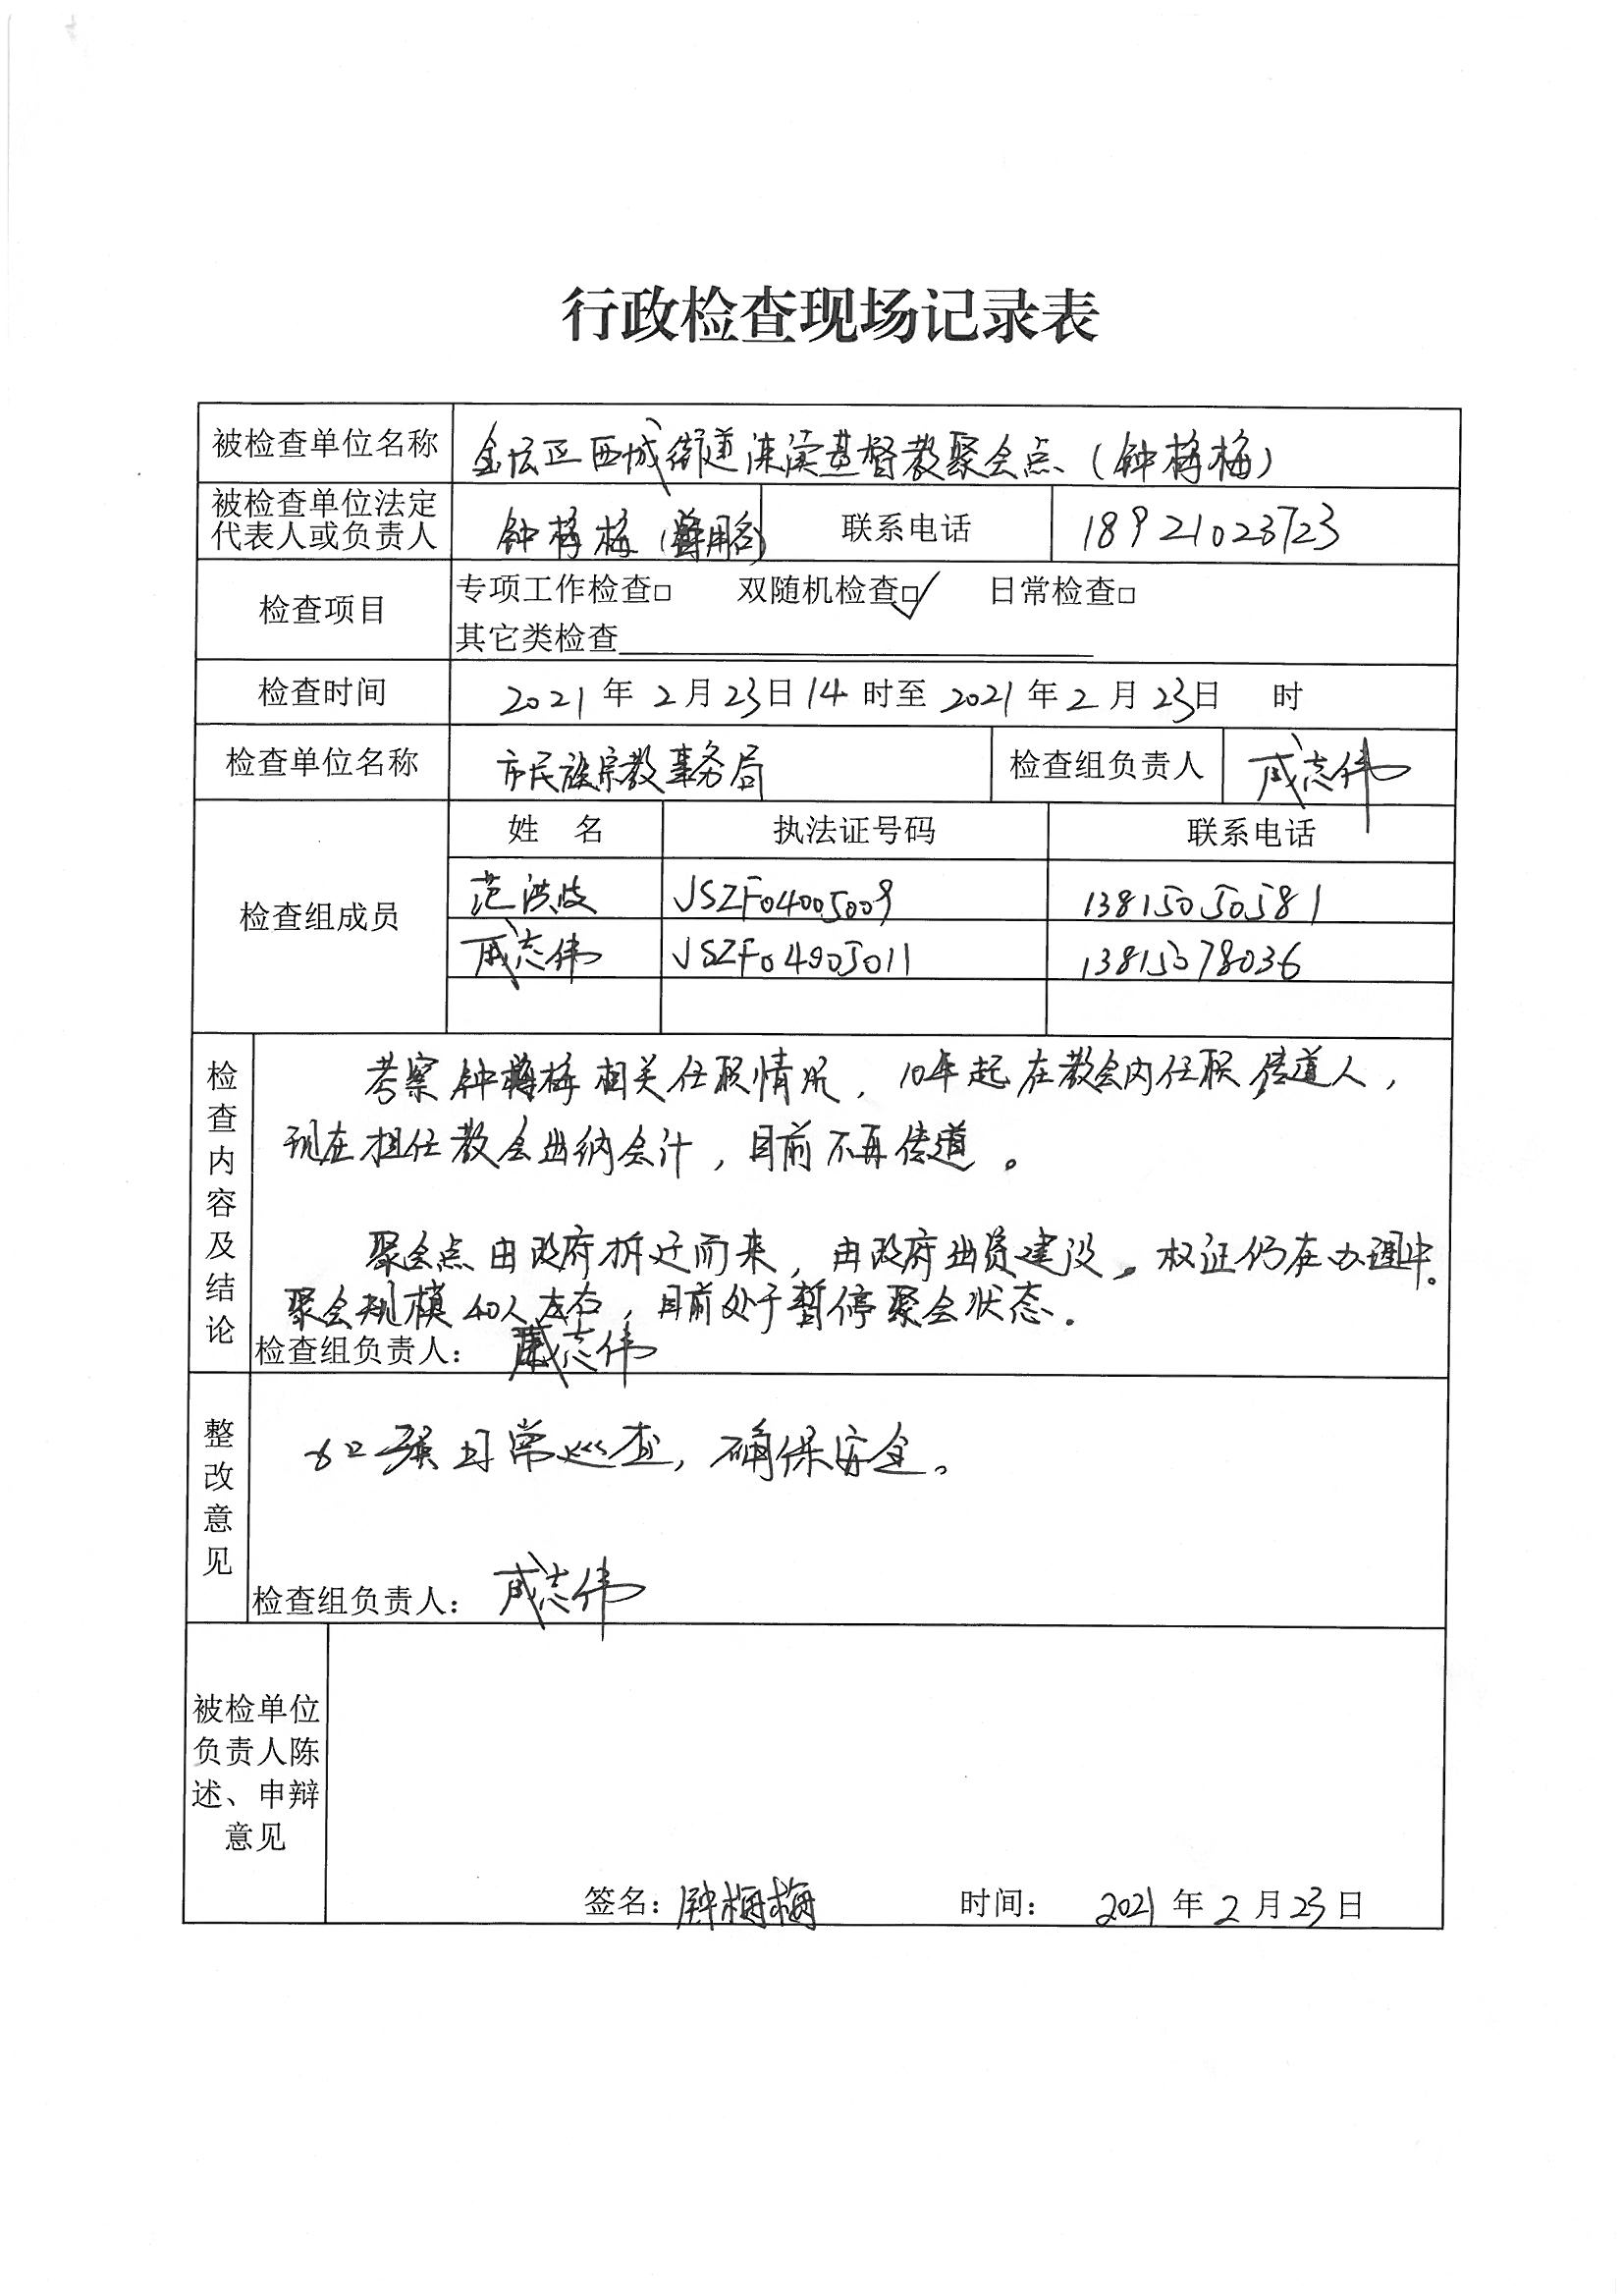 行政检查现场记录表
被检查单位名称 金坛区西城街道涑渎基督教聚会点（钟梅梅）
被检查单位法定
代表人或负责人 钟梅梅（曾用名） 联系电话 18921023723
检查项目 专项工作检查□ 双随机检查□✓ 日常检查□
其它类检查
检查时间 2021年2月23日14时至2021年2月23日 时
检查单位名称 市民族宗教事务局 检查组负责人 戚志伟
检查组成员 姓 名 执法证号码 联系电话
范洪 JSZF04005009 13815050581
戚志伟 JSZF04005011 13815078036
检查内容及结论
考察钟梅梅相关任职情况，10年起在教会内任职传道人，
现在担任教会出纳会计，目前不再传道。
聚会点由政府拆迁而来，由政府出资建设。权证仍在办理中。
聚会规模40人左右，目前处于暂停聚会状态.
检查组负责人： 戚志伟
整改意见
加强日常巡查，确保安全。
检查组负责人： 戚志伟
被检单位
负责人陈
述、申辩
意见
签名：钟梅梅 时间： 2021年2月23日